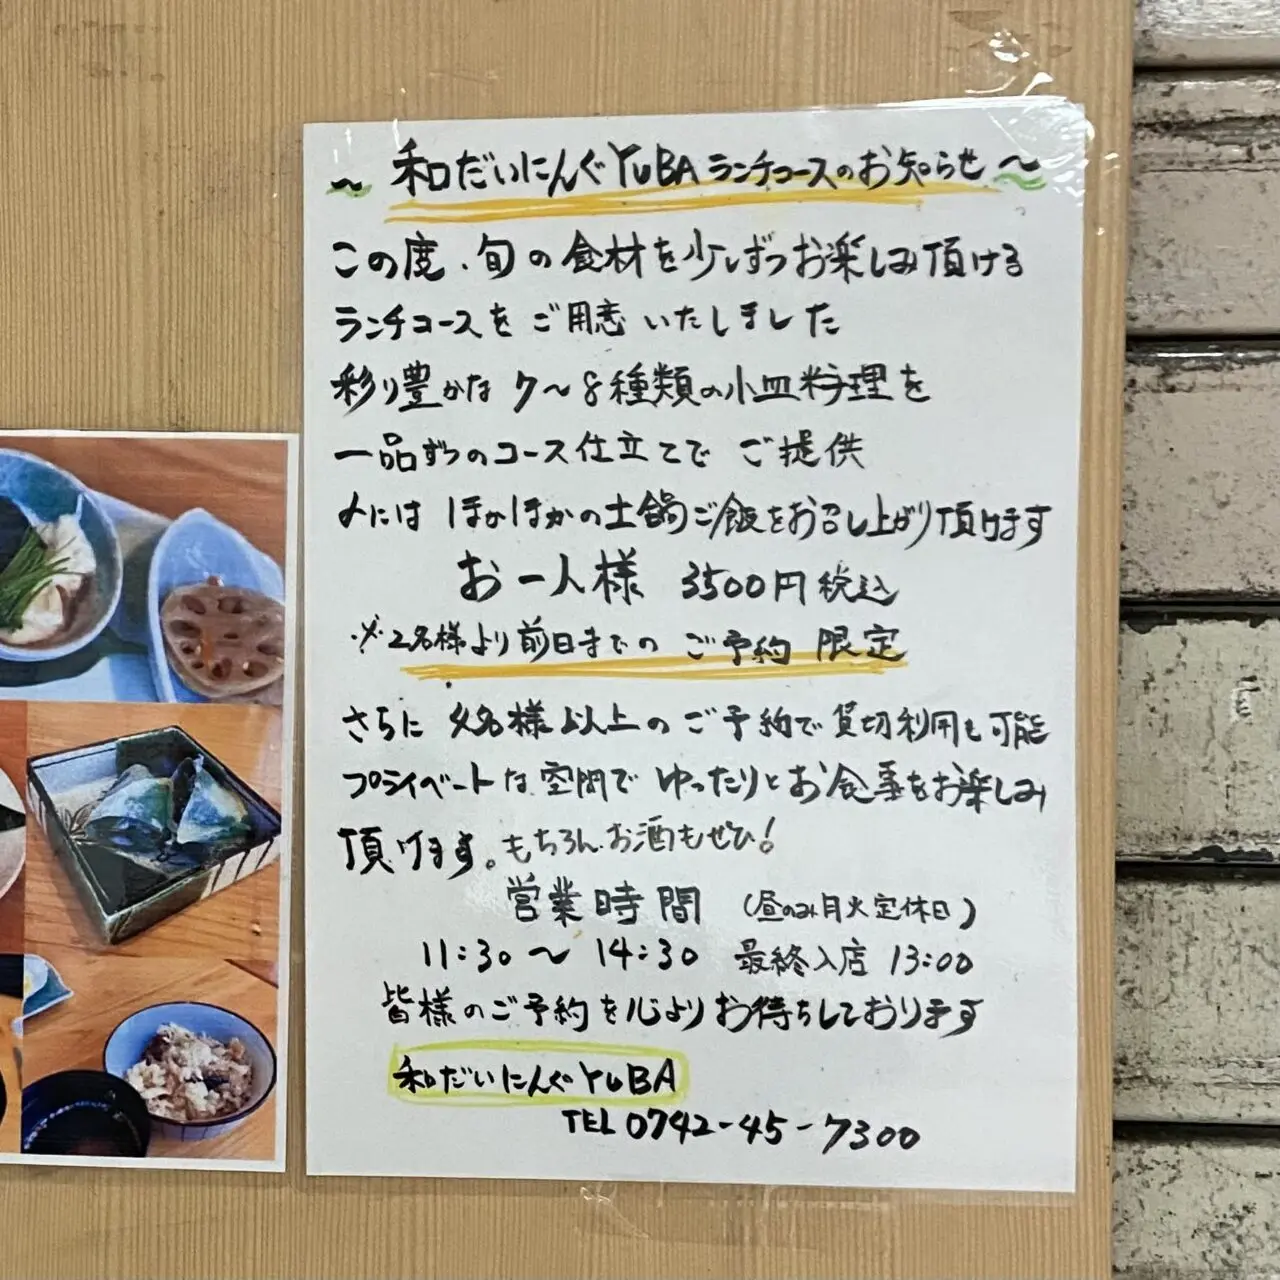 ～ 和だいにんぐYUBAランチコースのお知らせ ～
この度、旬の食材を少しずつお楽しみ頂ける
ランチコースをご用意いたしました
彩り豊かな 7～8種類の小皿料理を
一品ずつのコース仕立てで ご提供
〆には ほかほかの土鍋ご飯をお召し上がり頂けます
お一人様 3500円税込
※2名様より前日までの ご予約 限定
さらに 名様以上のご予約で貸切利用も可能
プライベートな空間で ゆったりとお食事をお楽しみ
頂けます。もちろんお酒もぜひ!
営業時間 (昼のみ月火定休日)
11:30～14:30 最終入店 13:00
皆様のご予約を心よりお待ちしております
和だいにんぐYUBA
TEL 0742-45-7300